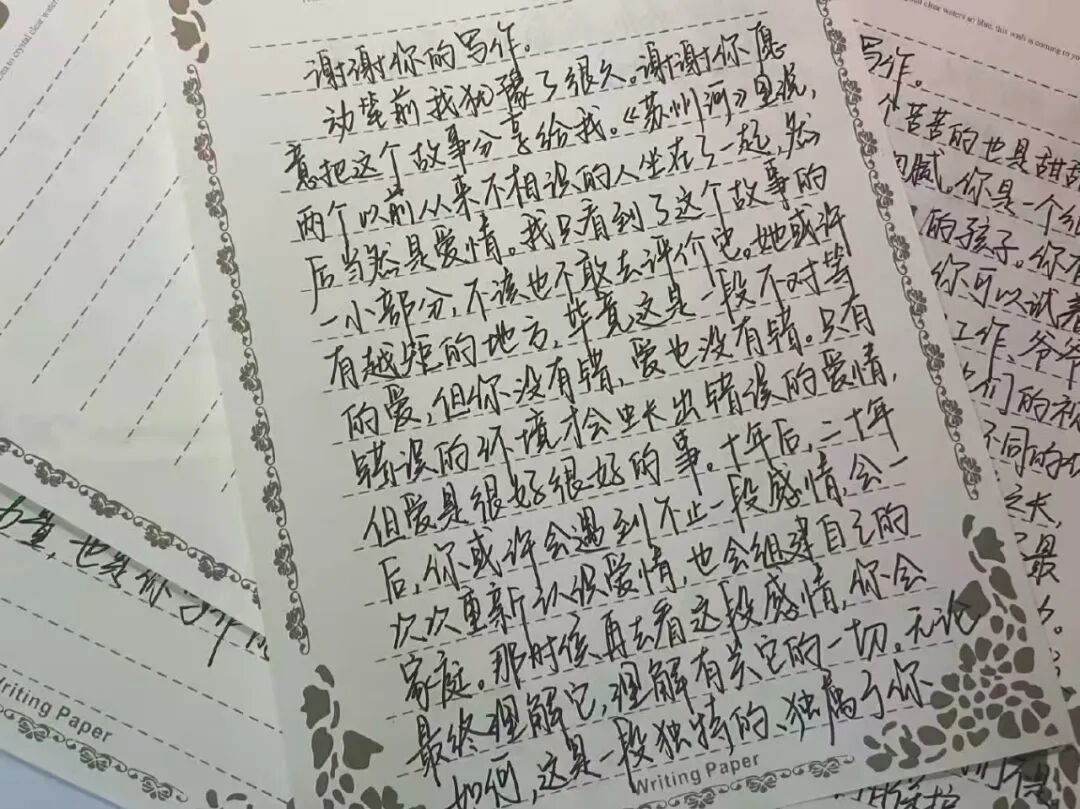 谢谢你的写作。
动笔前我犹豫了很久。谢谢你愿
意把这个故事分享给我。《苏州河》里说,
两个以前从来不相识的人坐在了一起,然
后当然是爱情。我只看到了这个故事的
一小部分,不该也不敢去评价它。她或许
有越矩的地方,毕竟这是一段不对等
的爱,但你没有错,爱也没有错。只有
错误的环境才会生长出错误的爱情,
但爱是很好很好的事。十年后,二十年
后,你或许会遇到不止一段感情,会一
次次重新认识爱情,也会组建自己的
家庭。那时候再去看这段感情,你会
最终理解它,理解有关它的一切。无论
如何,这是一段独特的、独属于你
Writing Paper
写作。
个苦苦的也是甜甜
细腻。你是一个细
的孩子。你不
你可以试着
工作、爷爷
们的视
不同的
之长,
最
力量,也给你
Writing Paper